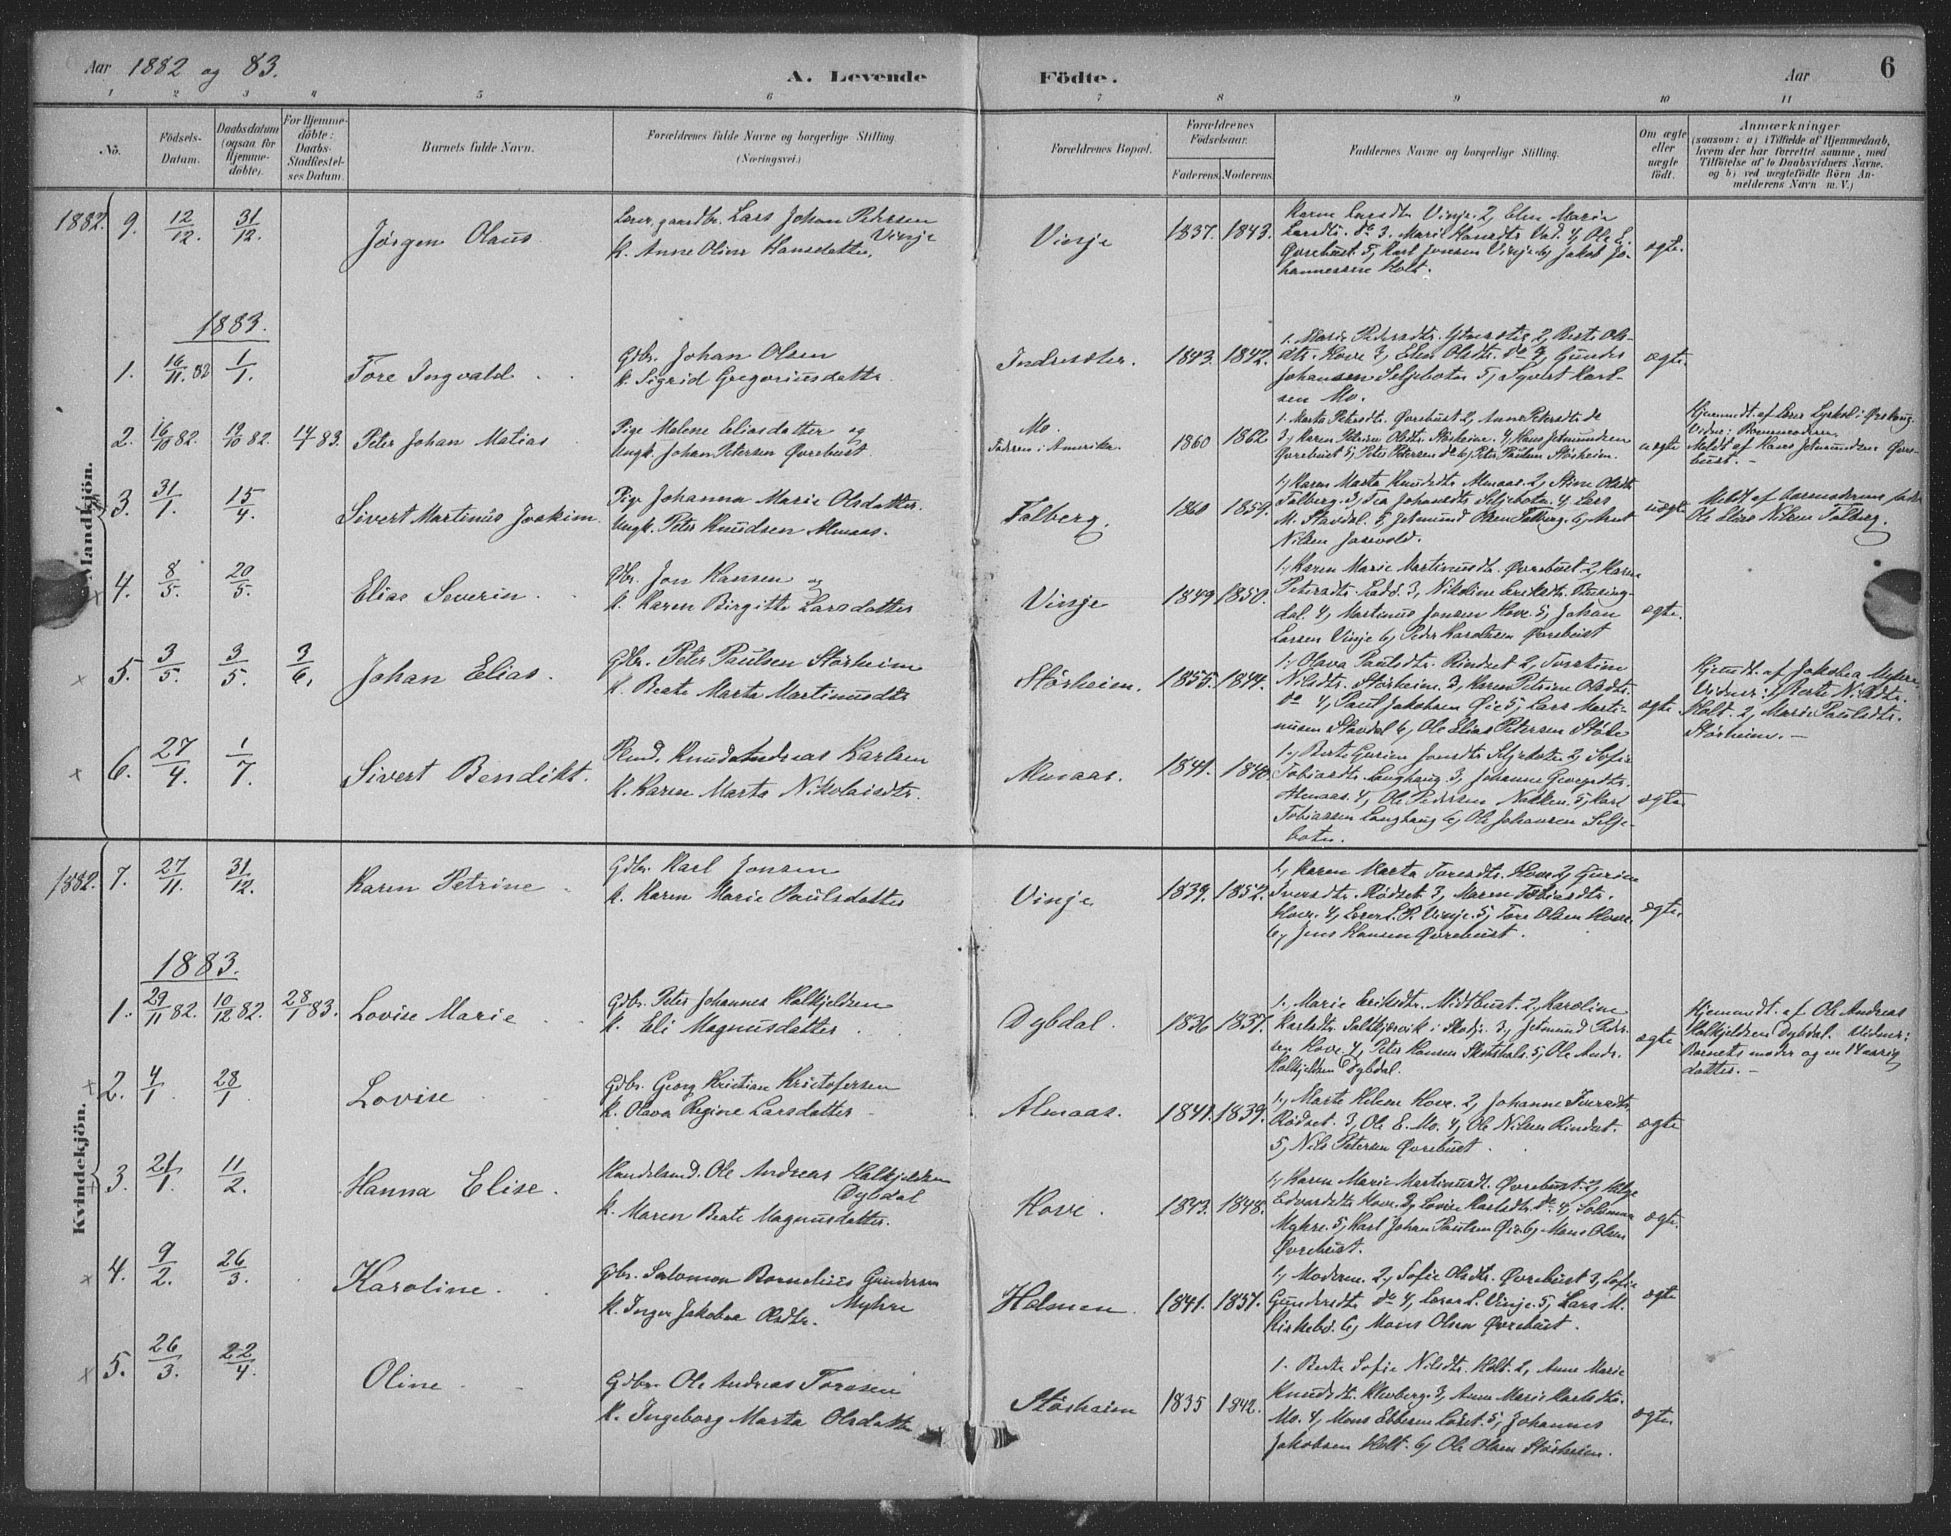 Aar 1882 og 83.
A. Levende Födte.
Aar
6
1 2 3 4 5 6 7 8 9 10 11
No.
Födsels-
Datum.
Daabsdatum
(ogsaa for
Hjemme-
döbte).
For Hjemme-
döbte:
Daabs-
Stadfæstel-
ses Datum.
Barnets fulde Navn.
Forældrenes fulde Navne og borgerlige Stilling
(Næringsvei.)
Forældrenes Bopæl.
Forældrenes
Födselsaar.
Faderens. Moderens.
Faddernes Navne og borgerlige Stilling.
Om ægte
eller
uægte
födt.
Anmærkninger
(saasom: a) i Tilfælde af Hjemmedaab,
hvem der har forrettet samme, med
Tilföielse af to Daabsvidners Navne,
og b) ved uægtefödte Börn An-
melderens Navn m. V.)
Mandkjön.
1882. 9. 12/12. 31/12. Jørgen Olaus
Lærer, gaardbr. Lars Johan Petersen Vinje
K. Anne Oline Hansdatter.
Vinje 1837. 1843.
Karen Larsdtr. Vinje. 2, Elen Marie
Larsdtr. do 3. Marie Hansdtr Vad. 4, Ole E.
Øvrebust. 5, Karl Jonsen Vinje 6, Jakob Jo-
hannessen Holt.
ægte.
1883.
1. 16/11. 82 1/1. Tore Ingvald
Gbr. Johan Olsen
K. Sigrid Gregoriusdatter
Indresæter. 1843. 1842.
1. Marie Pedersdtr. Ytresæter 2, Berte Ols-
dtr. Hove 3, Elen Olsdtr. do 4, Gunder
Johansen Seljebotn 5, Syvert Karl-
sen Mo.
ægte.
2. 16/10 82. 19/10 82. 14/1 83. Peter Johan Matias
Pige Malene Eliasdatter og
Ungk. Johan Petersen Øvrebust.
Mo.
Faderen i Amerika. 1860 1862
1. Marta Petersdtr. Øvrebust 2, Anne Petersdtr do
3, Karen Petrine Olsdtr. Störheim. 4, Hans Jetmundsen
Øvrebust 5, Peter Petersen do 6, Peter Paulsen Störheim.
uægte
Hjemmedt. af Lærer Lyskol i Ørskoug.
Vidne: Barnemoderen.
Meldt af Hans Jetmundsen Øvre-
bust. -
3. 31/1. 15/4. Sivert Martinus Joakim.
Pige Johanna Marie Olsdatter.
Ungk. Peter Knudsen Almaas.
Talberg. 1860 1859.
1, Karen Marta Knudsdtr Almaas 2, Stine Olsdtr
Talberg. 3, Pea Johansdtr Seljebotn 4, Lars
M. Stavdal. 5, Jetmund Olsen Talberg. 6, Knut
Nilsen
uægte
Meldt af barnemoderens fader
Ole Elias Nilsen Talberg.
4. 8/5. 20/5. Elias Severin.
Gbr. Jon Hansen og
K. Karen Birgitte Larsdatter
Vinje 1849 1850.
1, Karen Marie Martinusdtr. Øvrebust 2, Karen
Petersdtr. Ladd. 3, Nikoline Eriksdtr.
dal. 4, Martinus Jonsen Hove. 5, Johan
Larsen Vinje 6, Peder Karolusen Øvrebust
ægte.
5. 3/5. 3/5. 3/6. Johan Elias.
Gbr. Peter Paulsen Störheim
K. Beate Marta Martinusdtr
Störheim. 1855. 1844.
1, Olava Paulsdtr. Rindset 2, Torstine
Nilsdtr. Störheim. 3, Karen Petrine Olsdtr.
do 4, Paul Jakobsen Øie 5, Lars Marti-
nussen Stavdal 6, Ole Elias Petersen Støle
ægte
Hjemdt. af Jakobea Myhre
Vidner: 1, Berte Nilsdtr.
Holt. 2, Marie Paulsdtr.
Störheim. -
6. 27/4. 1/7. Sivert Bendikt.
Knud Andreas Karlsen
K. Karen Marta Nikolaisdtr.
Almaas. 1841. 1840
1, Berte Gurine Jonsdtr Seljebotn 2, Sofie
Tobiasdtr. Langhaug. 3, Johanne Georgsdtr.
Almaas. 4, Ole Pedersen Nakken. 5, Karl
Tobiassen Langhaug 6, Ole Johansen Selje-
botn.
ægte
Kvindekjön.
1882. 7. 27/11. 31/12. Karen Petrine
Gdbr. Karl Jonsen
K. Karen Marie Paulsdatter
Vinje 1839. 1852.
1, Karen Marta Toresdtr. Hove 2, Gurine
Iversdtr. Rødset. 3, Maren Tobiasdtr.
Hove. 4, Lærer L. P. Vinje. 5, Tore Olsen Hove.
6, Jens Hansen Øvrebust.
ægte.
1883.
1. 29/11 82. 10/12 82. 28/1 83. Lovise Marie
Gdbr. Peter Johannes Halkjeldsen
K. Eli Magnusdatter
Dybdal. 1836 1837.
1. Marie Eriksdtr. Midtbust. 2, Karoline
Karlsdtr. Solkjørvik i Stodj. 3, Jetmund Peder-
sen Hove. 4, Peter Hansen 5, Ole Andr.
Halkjeldsen Dybdal.
ægte
Hjemmdt. af Ole Andreas
Halkjeldsen Dybdal. Vidner:
Barnets moder og en 14 aarig
datter. -
2. 4/1 28/1 Lovise
Gdbr. Georg Kristian Kristofersen
K. Olava Regine Larsdatter
Almaas. 1841. 1839.
1, Marte Helene Hove. 2, Johanne Iversdtr.
Rødset. 3, Ole E. Mo. 4, Ole Nilsen Rindset.
5, Nils Petersen Øvrebust.
ægte
3. 21/1. 11/2. Hanna Elise.
Handelsmd. Ole Andreas Halkjeldsen
Dybdal
K. Maren Beate Magnusdatter.
Hove. 1843. 1848.
1, Karen Marie Martinusdt. Øvrebust. 2,
Edvardsdtr Hove. 3, Lovise Karlsdtr. do 4, Solomon
Myhre. 5, Karl Johan Paulsen Øie 6, Mons Olsen
Øvrebust.
ægte.
4. 9/2. 26/3. Karoline.
Gbr. Salomon Bornelius Gundersen
Myhre
K. Inger Jakobea Olsdtr.
Holmen. 1841. 1851.
1, Moderen. 2, Sofie Olsdtr. Øvrebust 3, Sofie
Gundersdtr do 4, Lærer L. Vinje. 5, Lars M.
Kirkebø. 6, Mons Olsen Øvrebust.
ægte
5. 26/3. 22/4. Oline
Gdbr. Ole Andreas Toresen
K. Ingeborg Marta Olsdatter
Störheim 1835 1842.
1. Berte Sofie Nilsdtr. Holt. 2, Anne Marie
Knudsdt. Klevberg. 3, Anne Marie Karlsdtr.
Mo. 4, Mons Ebbesen 5, Johannes
Jakobsen Holt. 6, Ole Olsen Störheim.
ægte